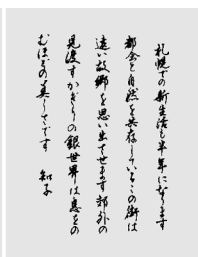 札幌での新生活も半年になります
都会と自然を共存しているこの街は
遠い故郷を思い出させます郊外の
見渡すかぎりの銀世界は息をの
むほどの美しさです 知子